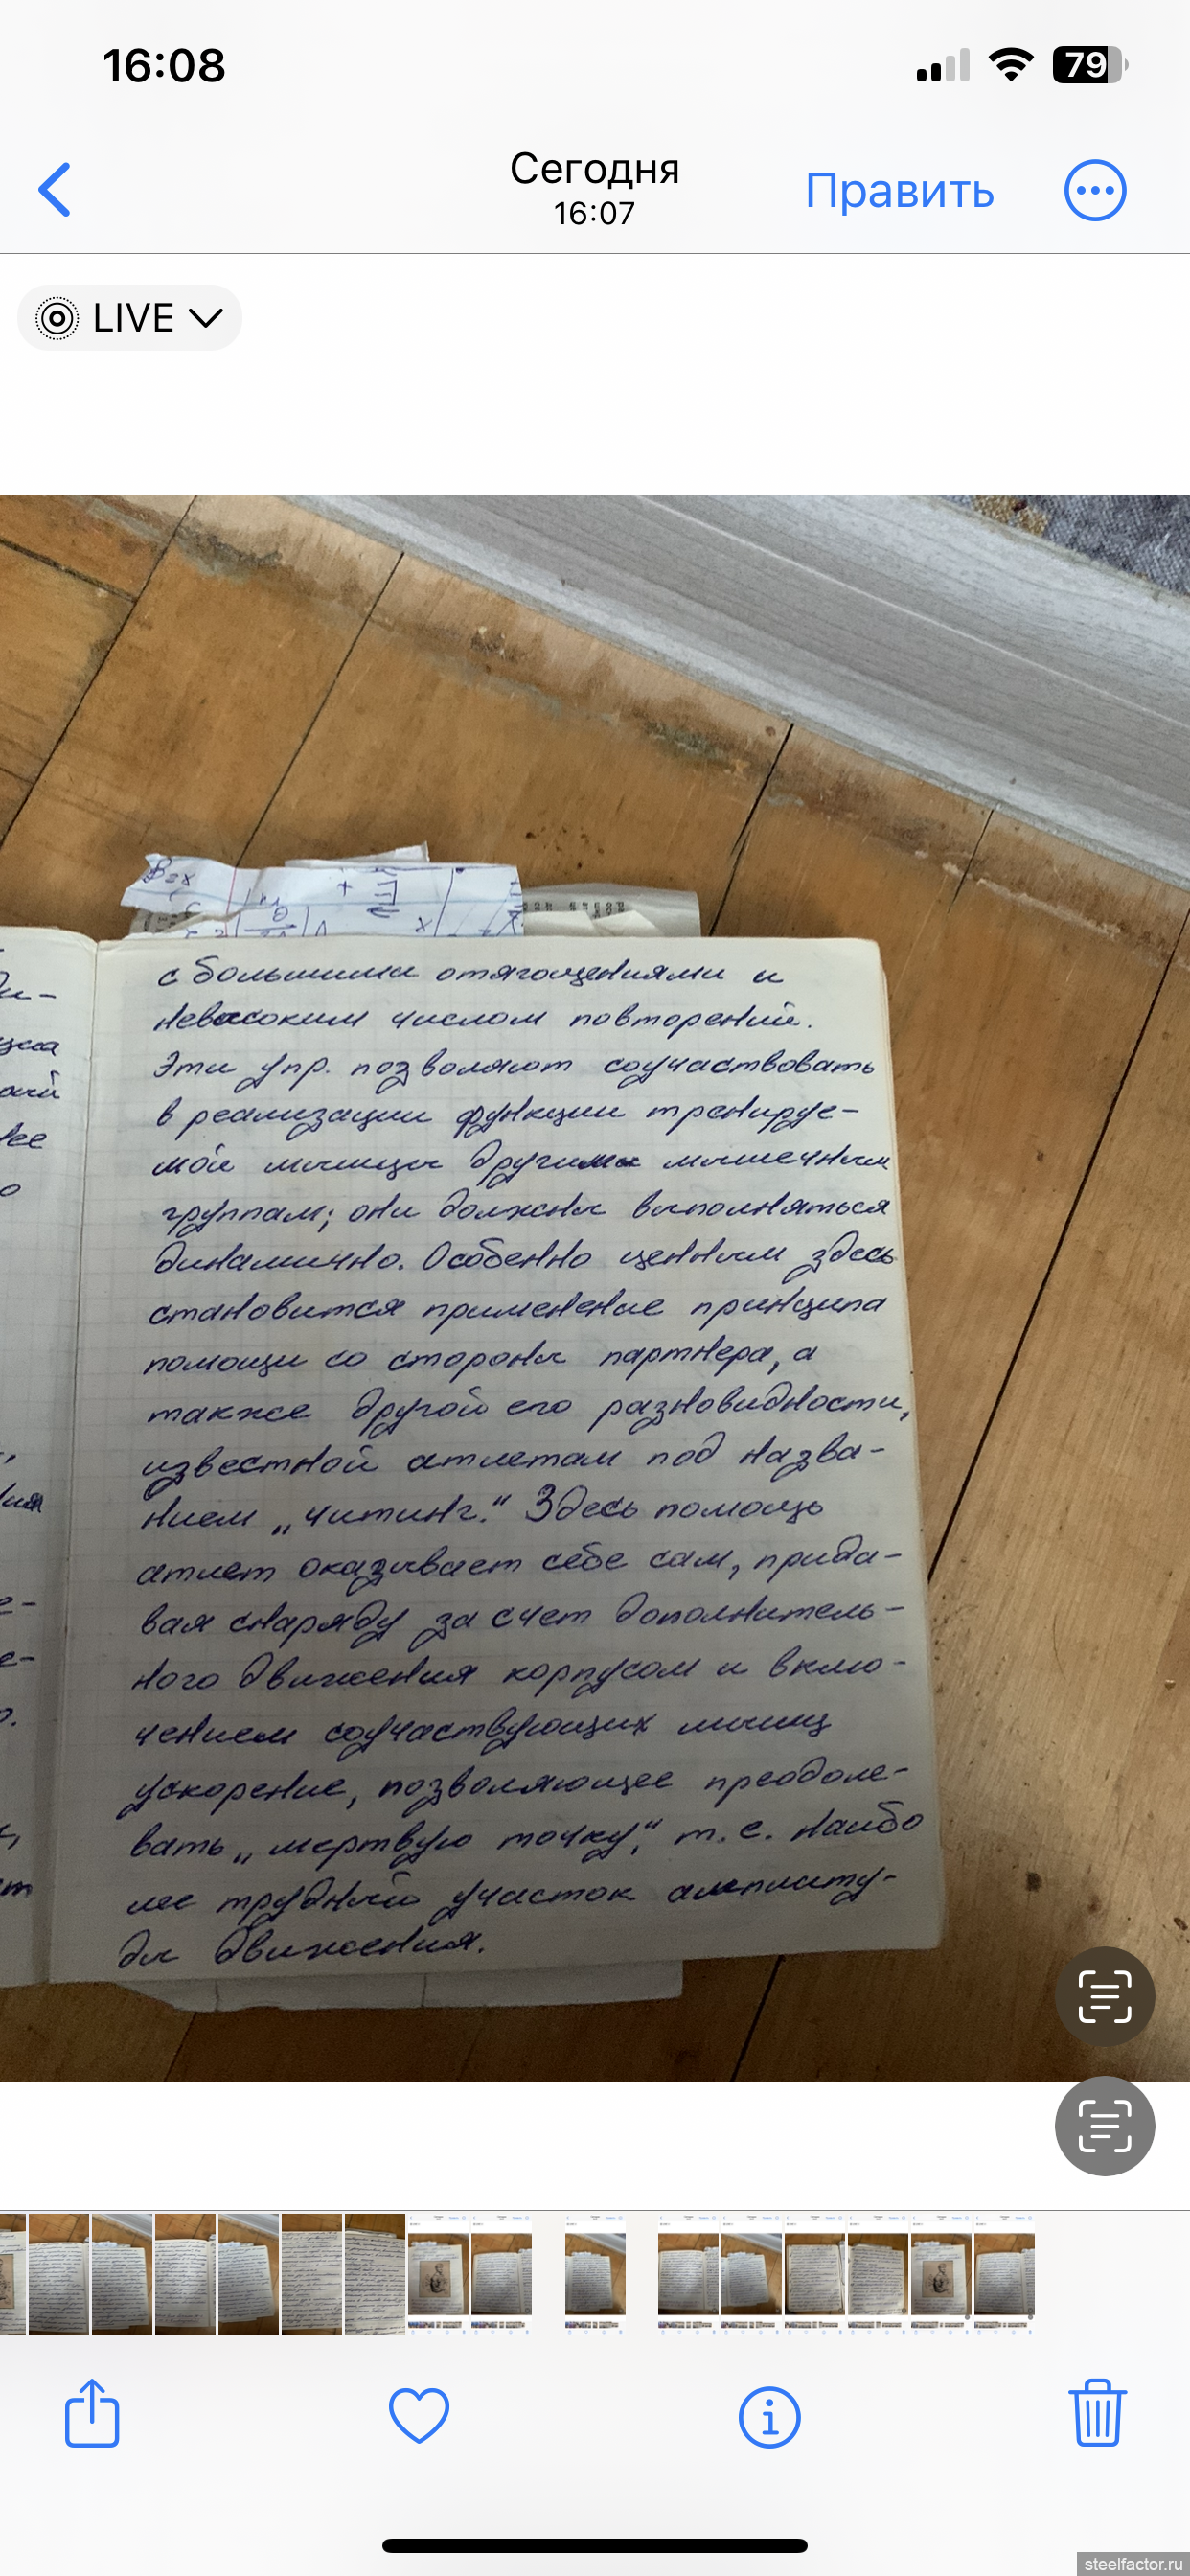 16:08
79
Сегодня
16:07
Править
LIVE
с большими отягощениями и
невысоким числом повторений.
Эти упр. позволяют соучаствовать
в реализации функции тренируе-
мой мышцы другим мышечным
группам; они должны выполняться
динамично. Особенно ценным здесь
становится применение принципа
помощи со стороны партнера, а
также другой его разновидности,
известной атлетам под назва-
нием „читинг." Здесь помощь
атлет оказывает себе сам, прида-
вая снаряду за счет дополнитель-
ного движения корпусом и вклю-
чением соучаствующих мышц
ускорение, позволяющее преодоле-
вать „мертвую точку", т.е. наибо
лее трудный участок амплиту-
ды движения.
steelfactor.ru